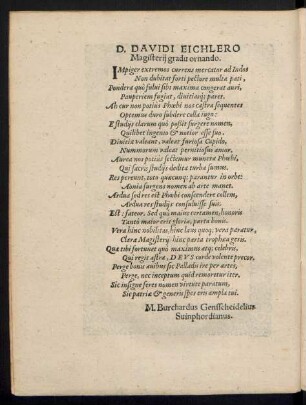 D. DAVIDI EICHLERO
Magisterij gradu ornando.
IMpiger extremos currens mercator ad Indos
Non dubitat forti pectore multa pati,
Pondera quò sulvi sibi maxima congerat auri,
Pauperiem fugiat, divitiasq; paret.
At cur non potius Phœbi nos castra sequentes
Optemus duro subdere colla iugo:
E studijs clarum quò possit surgere nomen,
Quilibet ingenio & notior esse suo.
Divitis valeant, valeat furiosa Cupido,
Nummorum valeat perniciosus amor,
Aurea nos potius sectemur munera Phœbi,
Qui sacra studijs dedita turba sumus.
Res pereunt, toto quæcunq; parantur in orbe:
Aonia surgens nomen ab arte manet.
Ardua sed res est Phœbi conscendere collem,
Ardua res studijs consuluisse suis.
EST: fateor. Sed quò maius certamen, honoris
Tantò maior erit gloria, parta bonis.
Vera hinc nobilitas, hinc laus quoq; vera paratur,
Clara Magisterij hinc parta trophæa gern.
Quæ tibi fortunet quò maxima atq; celebret,
Qui regit astra, DEVS corde volente precor.
Perge bonis avibus sic Palladis ire per artes,
Perge, nec inceptum quid remoretur iter.
Sic insigne feres nomen virtute paratum,
Sic patriæ & generis spes eris ampla tui.
M. Burchardus Gensscheidelius
Suinphordianus.